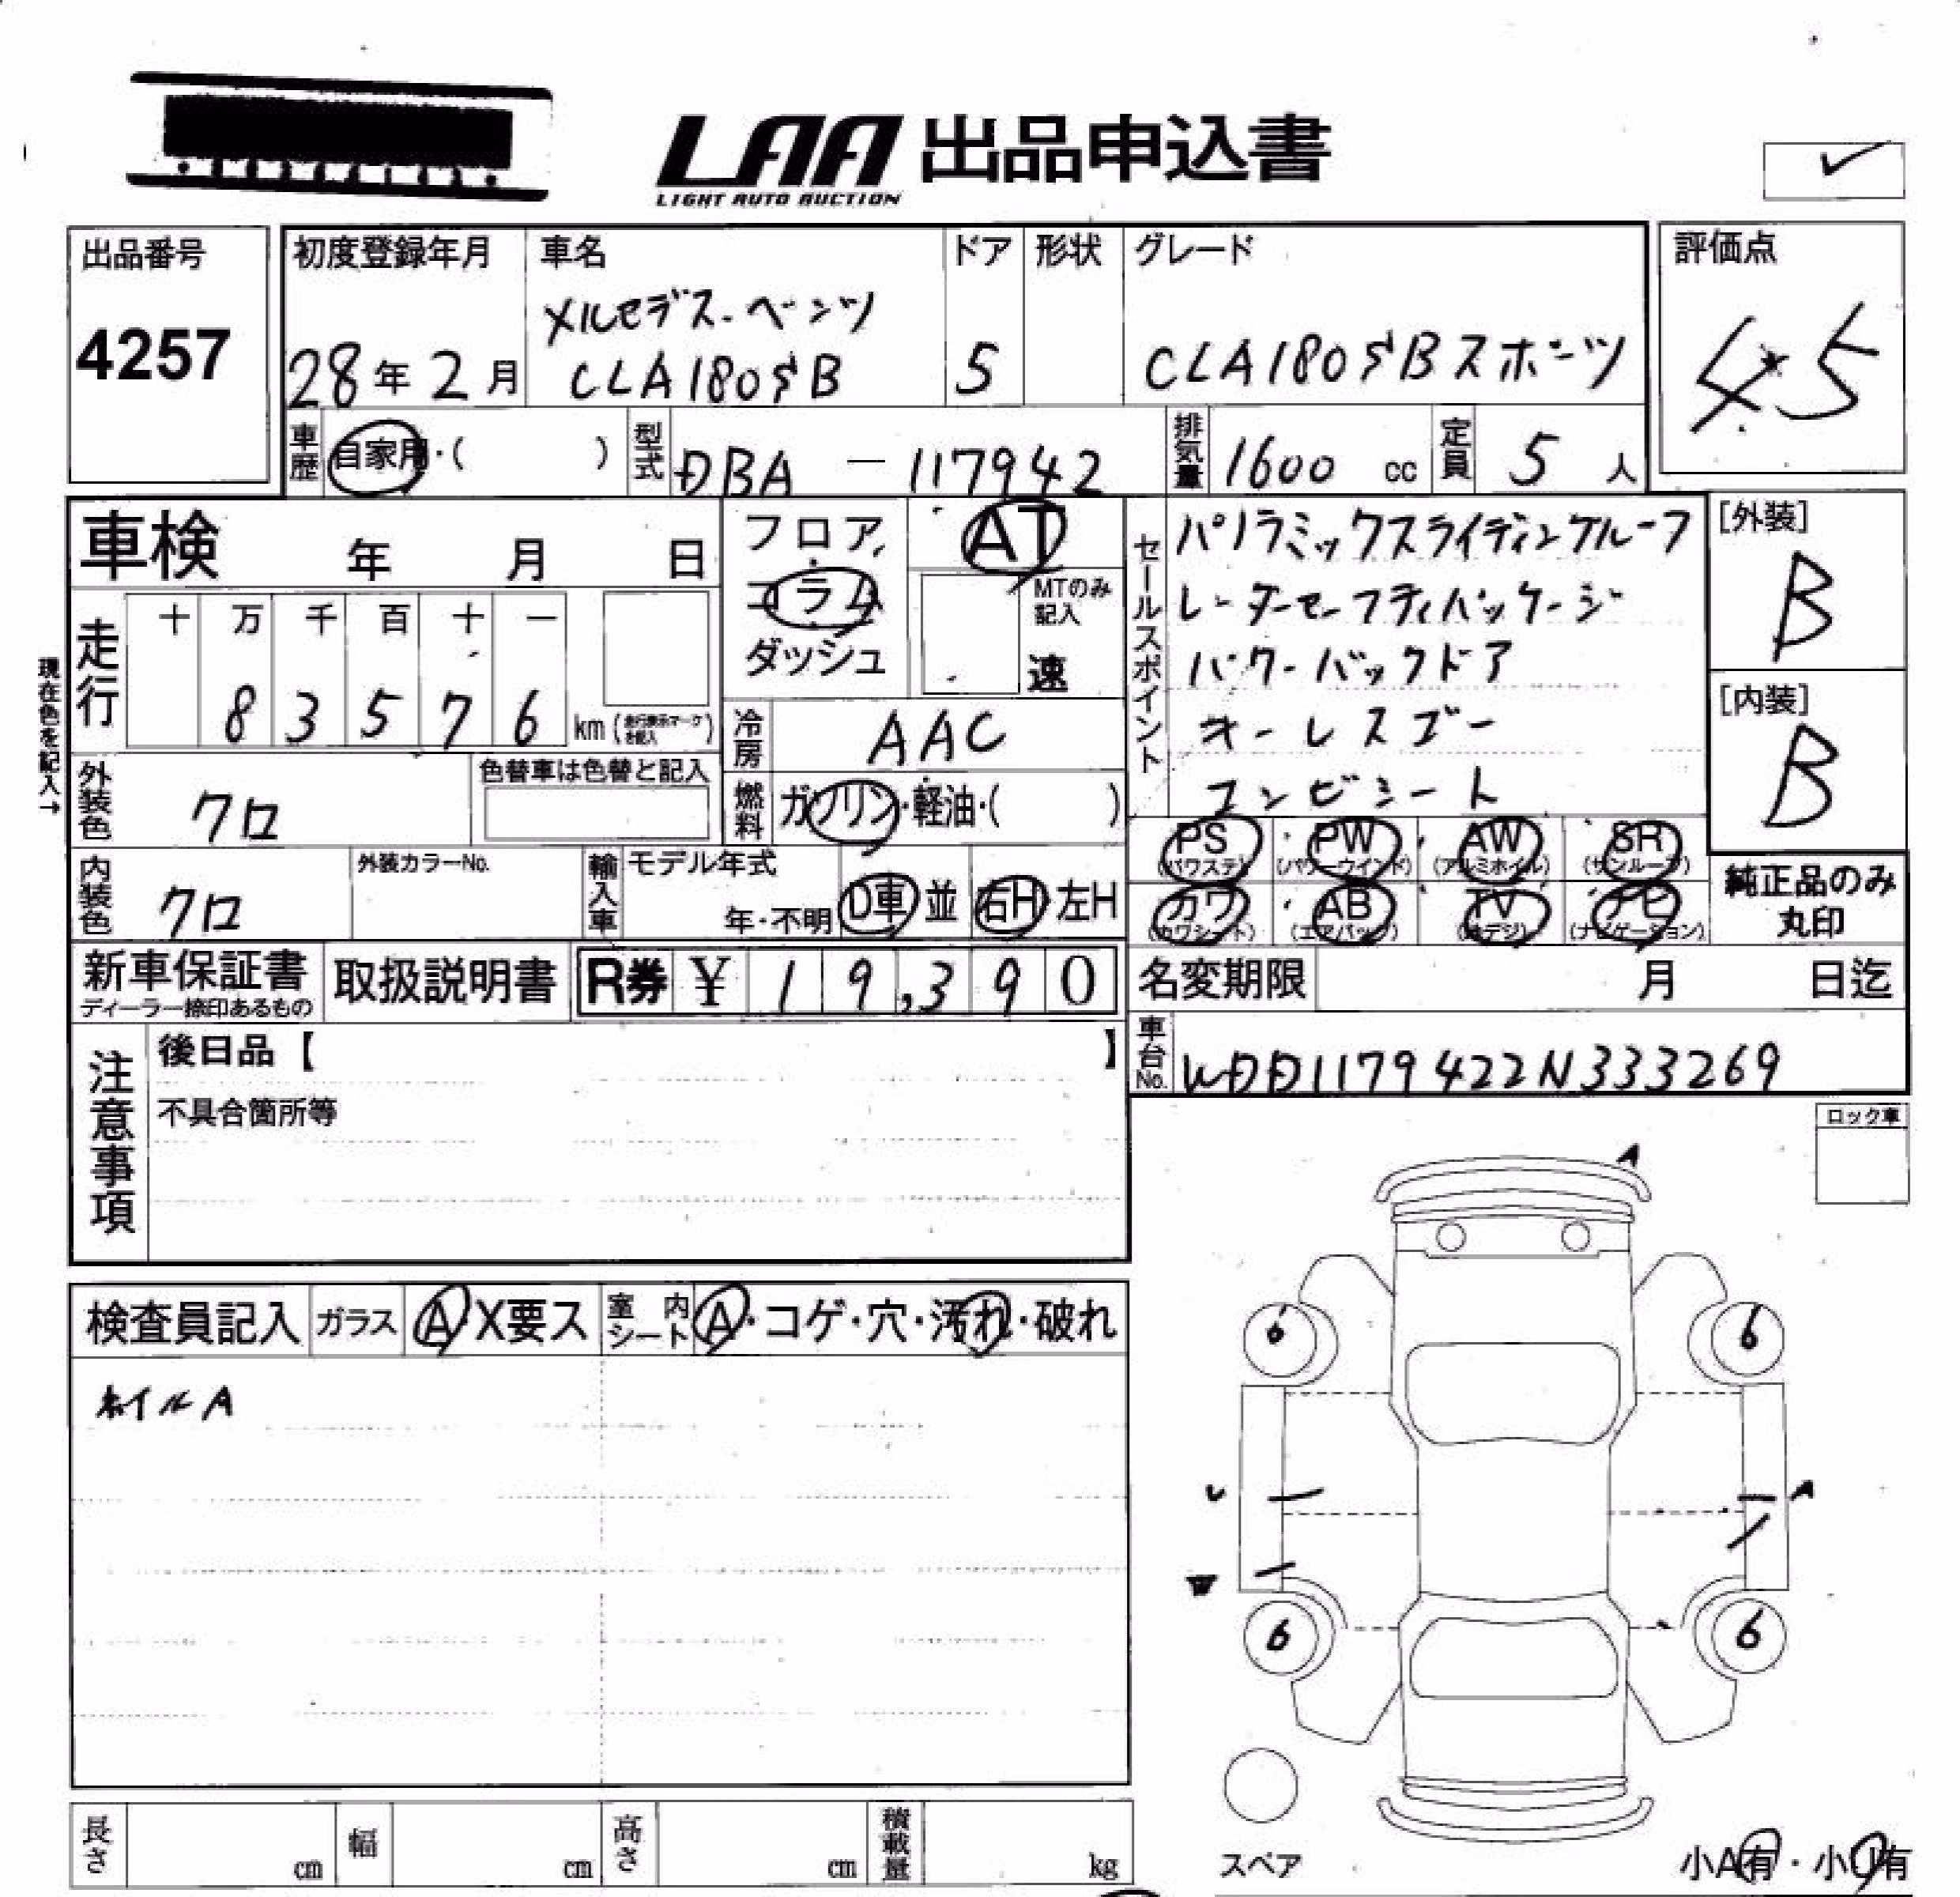 LAA 出品申込書
LIGHT AUTO AUCTION
出品番号
4257
初度登録年月
28年2月
車名
メルセデス-ベンツ
CLA180SB
ドア
5
形状
グレード
CLA180SBスポーツ
評価点
4.5
車歴
自家用・( )
型式
DBA - 117942
排気量
1600 cc
定員
5 人
車検 年 月 日
フロア
コラム
ダッシュ
AT
MTのみ
記入
速
セールスポイント
パノラミックスライディングルーフ
レーダーセーフティパッケージ
パワーバックドア
キーレスゴー
コンビシート
[外装]
B
[内装]
B
現在色を記入→
走行
十 万 千 百 十 一
8 3 5 7 6 km(走行表示マークを記入)
冷房
AAC
外装色
クロ
色替車は色替と記入
燃料
ガソリン・軽油・( )
PS
(パワステ)
PW
(パワーウインド)
AW
(アルミホイル)
SR
(サンルーフ)
内装色
クロ
外装カラーNo.
輸入車
モデル年式
年・不明
D車 並
右H 左H
カワ
(カワシート)
AB
(エアバック)
TV
(地デジ)
ナビ
(ナビゲーション)
純正品のみ
丸印
新車保証書
ディーラー捺印あるもの
取扱説明書
R券 ¥ 1 9,3 9 0
名変期限 月 日迄
車台No.
WDD1179422N333269
注意事項
後日品【 】
不具合箇所等
ロック車
A
検査員記入 ガラス A・X要ス 室内シート A・コゲ・穴・汚れ・破れ
ホイルA
6 6
U A
W
6 6
スペア
小A有・小U有
長さ cm 幅 cm 高さ cm 積載量 kg